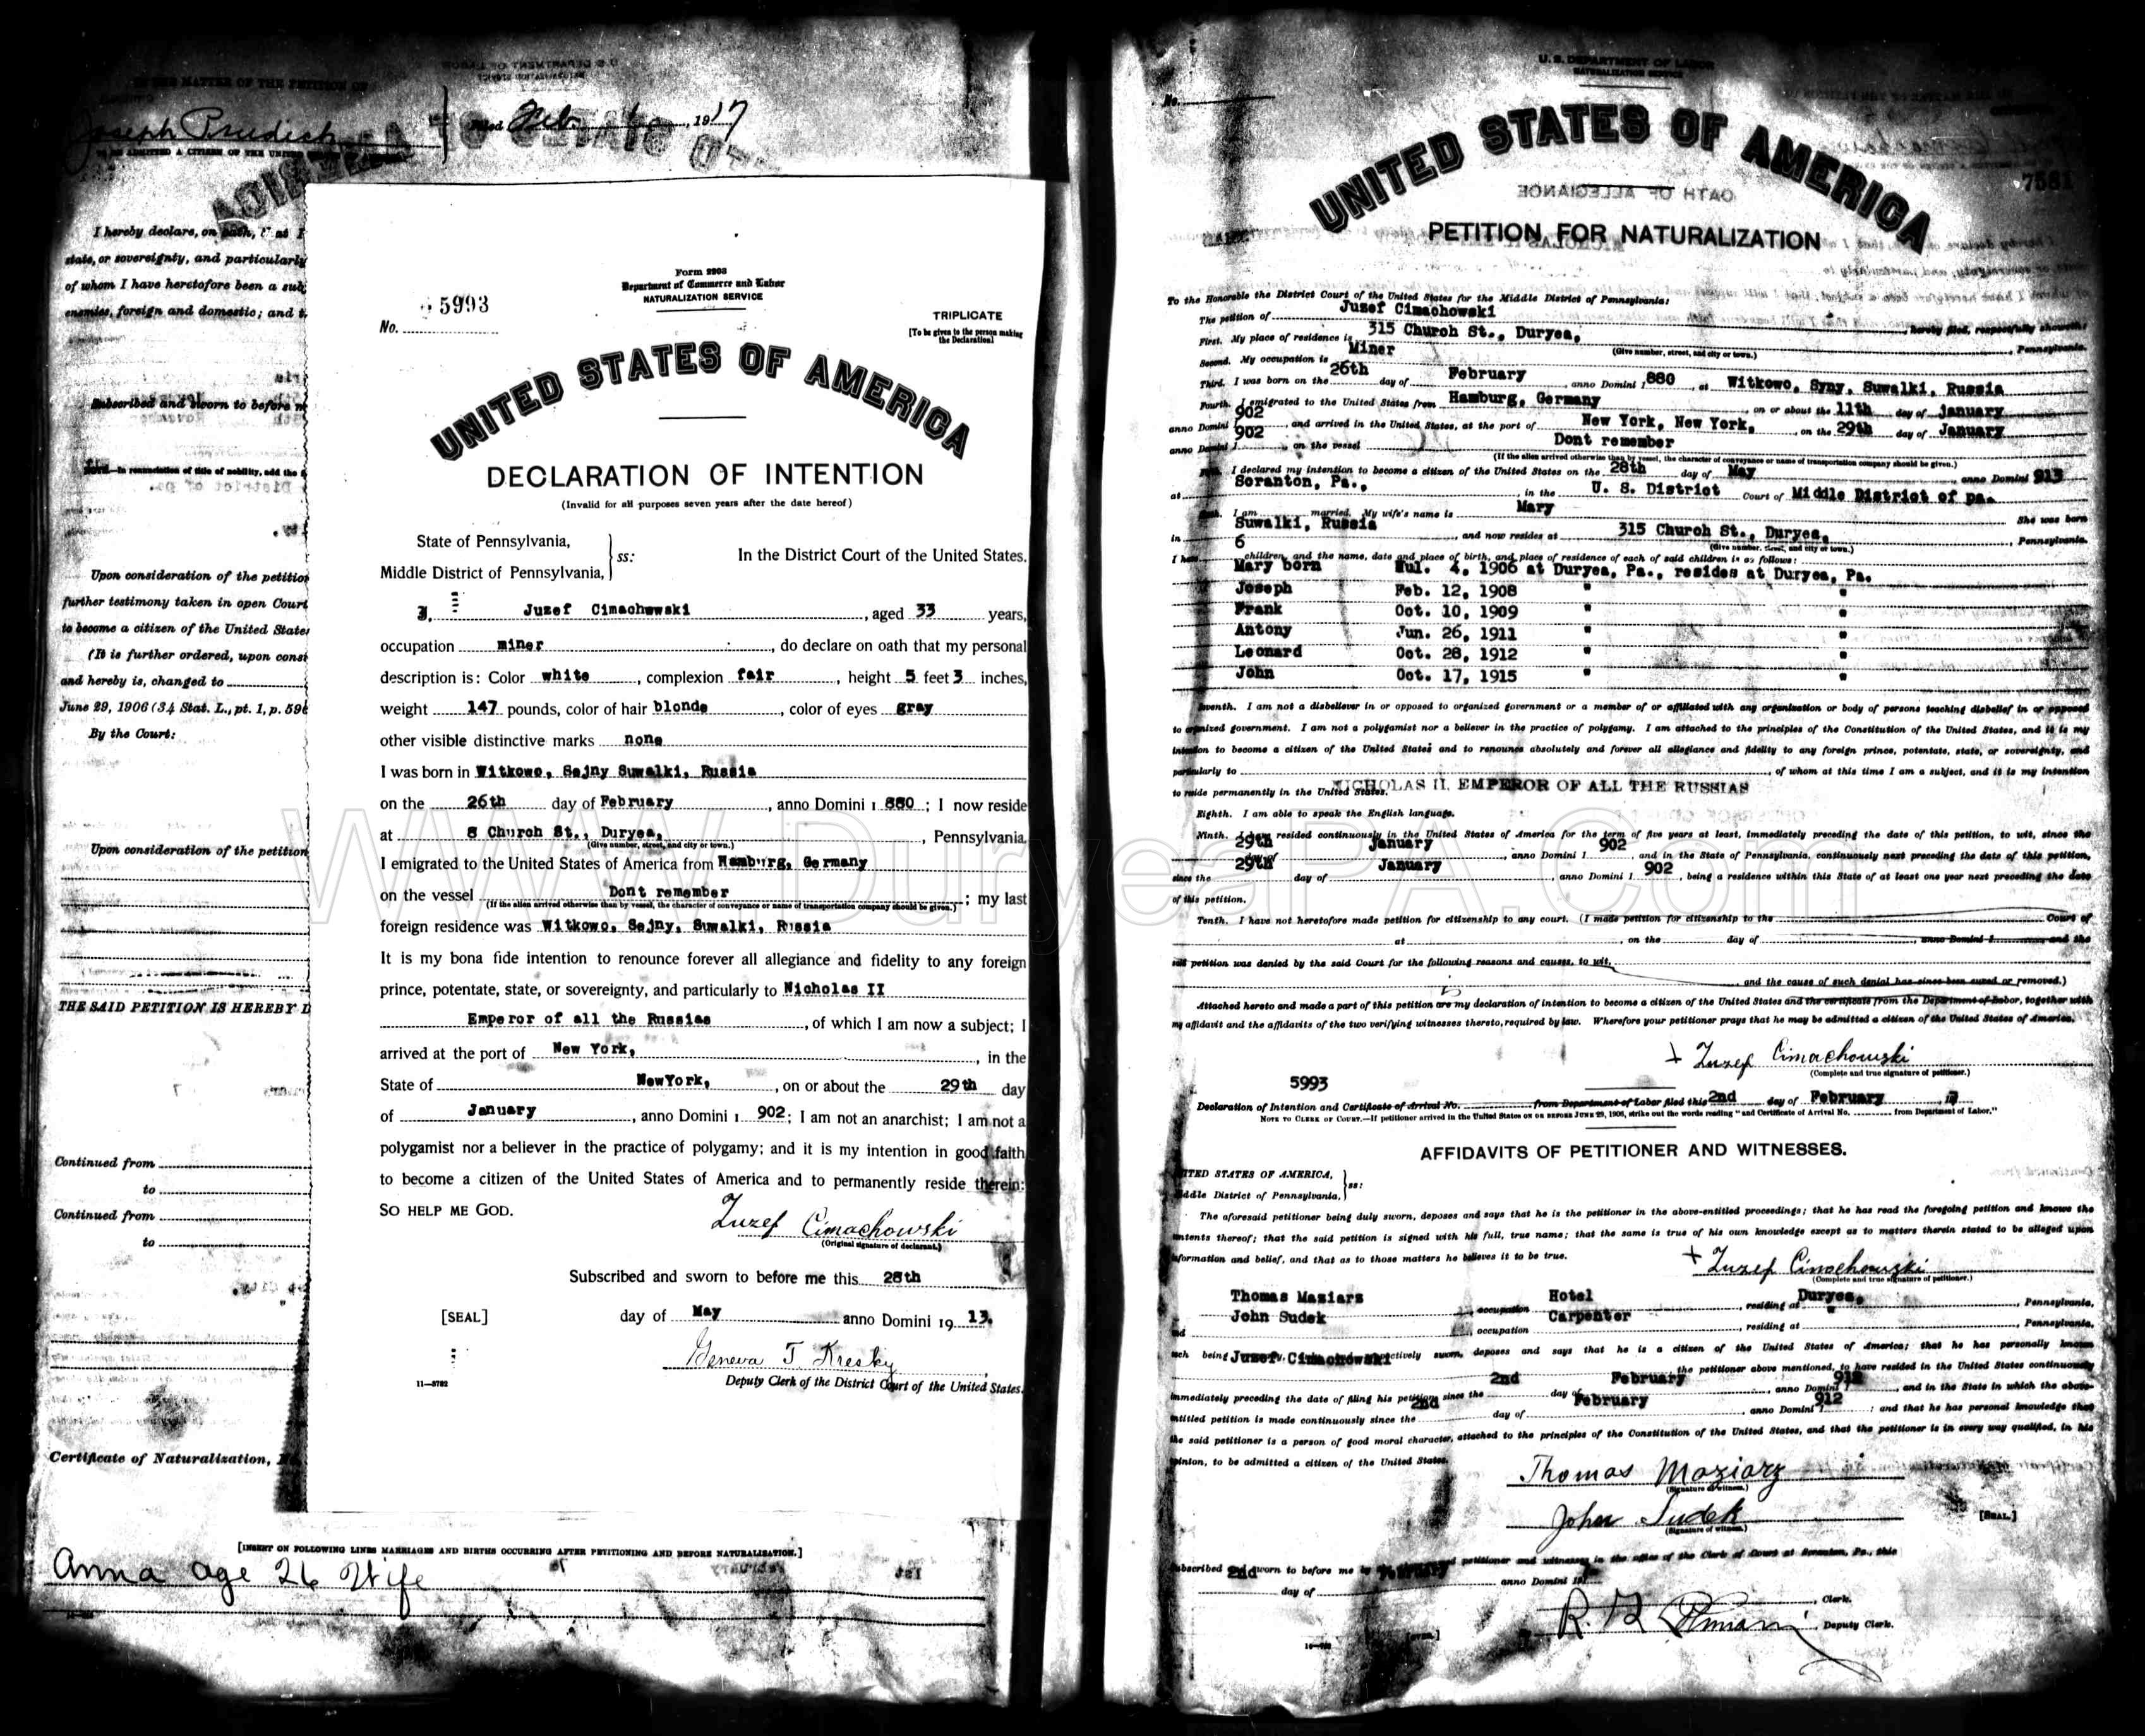 IN THE MATTER OF THE PETITION OF
Joseph Prudich
TO BE ADMITTED A CITIZEN OF THE UNITED
Filed Feb. 1917
I hereby declare, on oath, that I
state, or sovereignty, and particularly
of whom I have heretofore been a sub
enemies, foreign and domestic; and t
Subscribed and sworn to before m
NOTE.—In renunciation of title of nobility, add the f
Upon consideration of the petition
further testimony taken in open Court
to become a citizen of the United States
(It is further ordered, upon consi
and hereby is, changed to
June 29, 1906 (34 Stat. L., pt. 1, p. 596
By the Court:
Upon consideration of the petition
THE SAID PETITION IS HEREBY D
Continued from
to
Continued from
to
Certificate of Naturalization,
[INSERT ON FOLLOWING LINES MARRIAGES AND BIRTHS OCCURRING AFTER PETITIONING AND BEFORE NATURALIZATION.]
Anna age 26 Wife
Form 2203
Department of Commerce and Labor
NATURALIZATION SERVICE
No. 5993
TRIPLICATE
[To be given to the person making the Declaration]
UNITED STATES OF AMERICA
DECLARATION OF INTENTION
(Invalid for all purposes seven years after the date hereof)
State of Pennsylvania,
Middle District of Pennsylvania, ss: In the District Court of the United States.
I, Juzef Cimachowski, aged 33 years,
occupation miner, do declare on oath that my personal
description is: Color white, complexion fair, height 5 feet 3 inches,
weight 147 pounds, color of hair blonde, color of eyes gray
other visible distinctive marks none
I was born in Witkowo, Sejny Suwalki, Russia
on the 26th day of February, anno Domini 1 880; I now reside
at 8 Church St., Duryea, Pennsylvania.
(Give number, street, and city or town.)
I emigrated to the United States of America from Hamburg, Germany
on the vessel Dont remember; my last
(If the alien arrived otherwise than by vessel, the character of conveyance or name of transportation company should be given.)
foreign residence was Witkowo, Sejny, Suwalki, Russia
It is my bona fide intention to renounce forever all allegiance and fidelity to any foreign
prince, potentate, state, or sovereignty, and particularly to Nicholas II
Emperor of all the Russias, of which I am now a subject; I
arrived at the port of New York, in the
State of NewYork, on or about the 29th day
of January, anno Domini 1 902; I am not an anarchist; I am not a
polygamist nor a believer in the practice of polygamy; and it is my intention in good faith
to become a citizen of the United States of America and to permanently reside therein:
SO HELP ME GOD.
Juzef Cimachowski
(Original signature of declarant.)
Subscribed and sworn to before me this 28th
[SEAL] day of May anno Domini 19 13.
Geneva T Kresky
11—3782
Deputy Clerk of the District Court of the United States.
U. S. DEPARTMENT OF LABOR
NATURALIZATION SERVICE
No.
7581
UNITED STATES OF AMERICA
OATH OF ALLEGIANCE
PETITION FOR NATURALIZATION
To the Honorable the District Court of the United States for the Middle District of Pennsylvania:
The petition of Juzef Cimachowski, hereby filed, respectfully showeth:
First. My place of residence is 315 Church St., Duryea, Pennsylvania.
(Give number, street, and city or town.)
Second. My occupation is Miner
Third. I was born on the 26th day of February, anno Domini 1 880, at Witkowo, Syny, Suwalki, Russia
Fourth. I emigrated to the United States from Hamburg, Germany, on or about the 11th day of january
anno Domini 1 902, and arrived in the United States, at the port of New York, New York, on the 29th day of January
anno Domini 1 902 on the vessel Dont remember
(If the alien arrived otherwise than by vessel, the character of conveyance or name of transportation company should be given.)
Fifth. I declared my intention to become a citizen of the United States on the 28th day of May, anno Domini 913
at Scranton, Pa., in the U. S. District Court of Middle District of pa.
Sixth. I am married. My wife's name is Mary She was born
in Suwalki, Russia, and now resides at 315 Church St., Duryea, Pennsylvania.
(Give number, street, and city or town.)
I have 6 children, and the name, date and place of birth, and place of residence of each of said children is as follows:
Mary born Jul. 4, 1906 at Duryea, Pa., resides at Duryea, Pa.
Joseph Feb. 12, 1908 " "
Frank Oct. 10, 1909 " "
Antony Jun. 26, 1911 " "
Leonard Oct. 28, 1912 " "
John Oct. 17, 1915 " "
Seventh. I am not a disbeliever in or opposed to organized government or a member of or affiliated with any organization or body of persons teaching disbelief in or opposed
to organized government. I am not a polygamist nor a believer in the practice of polygamy. I am attached to the principles of the Constitution of the United States, and it is my
intention to become a citizen of the United States and to renounce absolutely and forever all allegiance and fidelity to any foreign prince, potentate, state, or sovereignty, and
particularly to, of whom at this time I am a subject, and it is my intention
to reside permanently in the United States. NICHOLAS II. EMPEROR OF ALL THE RUSSIAS
Eighth. I am able to speak the English language.
Ninth. I have resided continuously in the United States of America for the term of five years at least, immediately preceding the date of this petition, to wit, since the
29th day of January, anno Domini 1 902, and in the State of Pennsylvania, continuously next preceding the date of this petition,
since the 29th day of January, anno Domini 1 902, being a residence within this State of at least one year next preceding the date
of this petition.
Tenth. I have not heretofore made petition for citizenship to any court. (I made petition for citizenship to the Court of
at, on the day of, anno Domini 1 and the
said petition was denied by the said Court for the following reasons and causes, to wit,
and the cause of such denial has since been cured or removed.)
Attached hereto and made a part of this petition are is my declaration of intention to become a citizen of the United States and the certificate from the Department of Labor, together with
my affidavit and the affidavits of the two verifying witnesses thereto, required by law. Wherefore your petitioner prays that he may be admitted a citizen of the United States of America.
+ Juzef Cimachowski
(Complete and true signature of petitioner.)
5993
Declaration of Intention and Certificate of Arrival No. from Department of Labor filed this 2nd day of February 17
NOTE TO CLERK OF COURT.—If petitioner arrived in the United States ON OR BEFORE JUNE 29, 1906, strike out the words reading "and Certificate of Arrival No. from Department of Labor."
AFFIDAVITS OF PETITIONER AND WITNESSES.
UNITED STATES OF AMERICA,
Middle District of Pennsylvania, ss:
The aforesaid petitioner being duly sworn, deposes and says that he is the petitioner in the above-entitled proceedings; that he has read the foregoing petition and knows the
contents thereof; that the said petition is signed with his full, true name; that the same is true of his own knowledge except as to matters therein stated to be alleged upon
information and belief, and that as to those matters he believes it to be true.
+ Juzef Cimachowski
(Complete and true signature of petitioner.)
Thomas Maziarz, occupation Hotel, residing at Duryea, Pennsylvania,
and John Sudek, occupation Carpenter, residing at ", Pennsylvania,
each being Juzef Cimachowski respectively sworn, deposes and says that he is a citizen of the United States of America; that he has personally known
the petitioner above mentioned, to have resided in the United States continuously
immediately preceding the date of filing his petition since the 2nd day of February, anno Domini 1 912, and in the State in which the above-
entitled petition is made continuously since the 2nd day of February, anno Domini 1 912; and that he has personal knowledge that
the said petitioner is a person of good moral character, attached to the principles of the Constitution of the United States, and that the petitioner is in every way qualified, in his
opinion, to be admitted a citizen of the United States.
Thomas Maziarz
(Signature of witness.)
John Sudek
(Signature of witness.)
[SEAL.]
Subscribed and sworn to before me by the petitioner and witnesses in the office of the Clerk of Court at Scranton, Pa., this
2nd day of February anno Domini 19
Clerk.
Deputy Clerk.
www.DuryeaPA.com